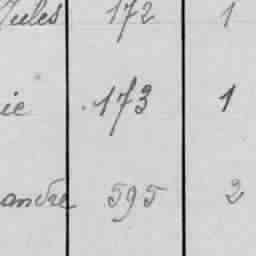 Jules 172 1
ie 173 1
andre 595 2